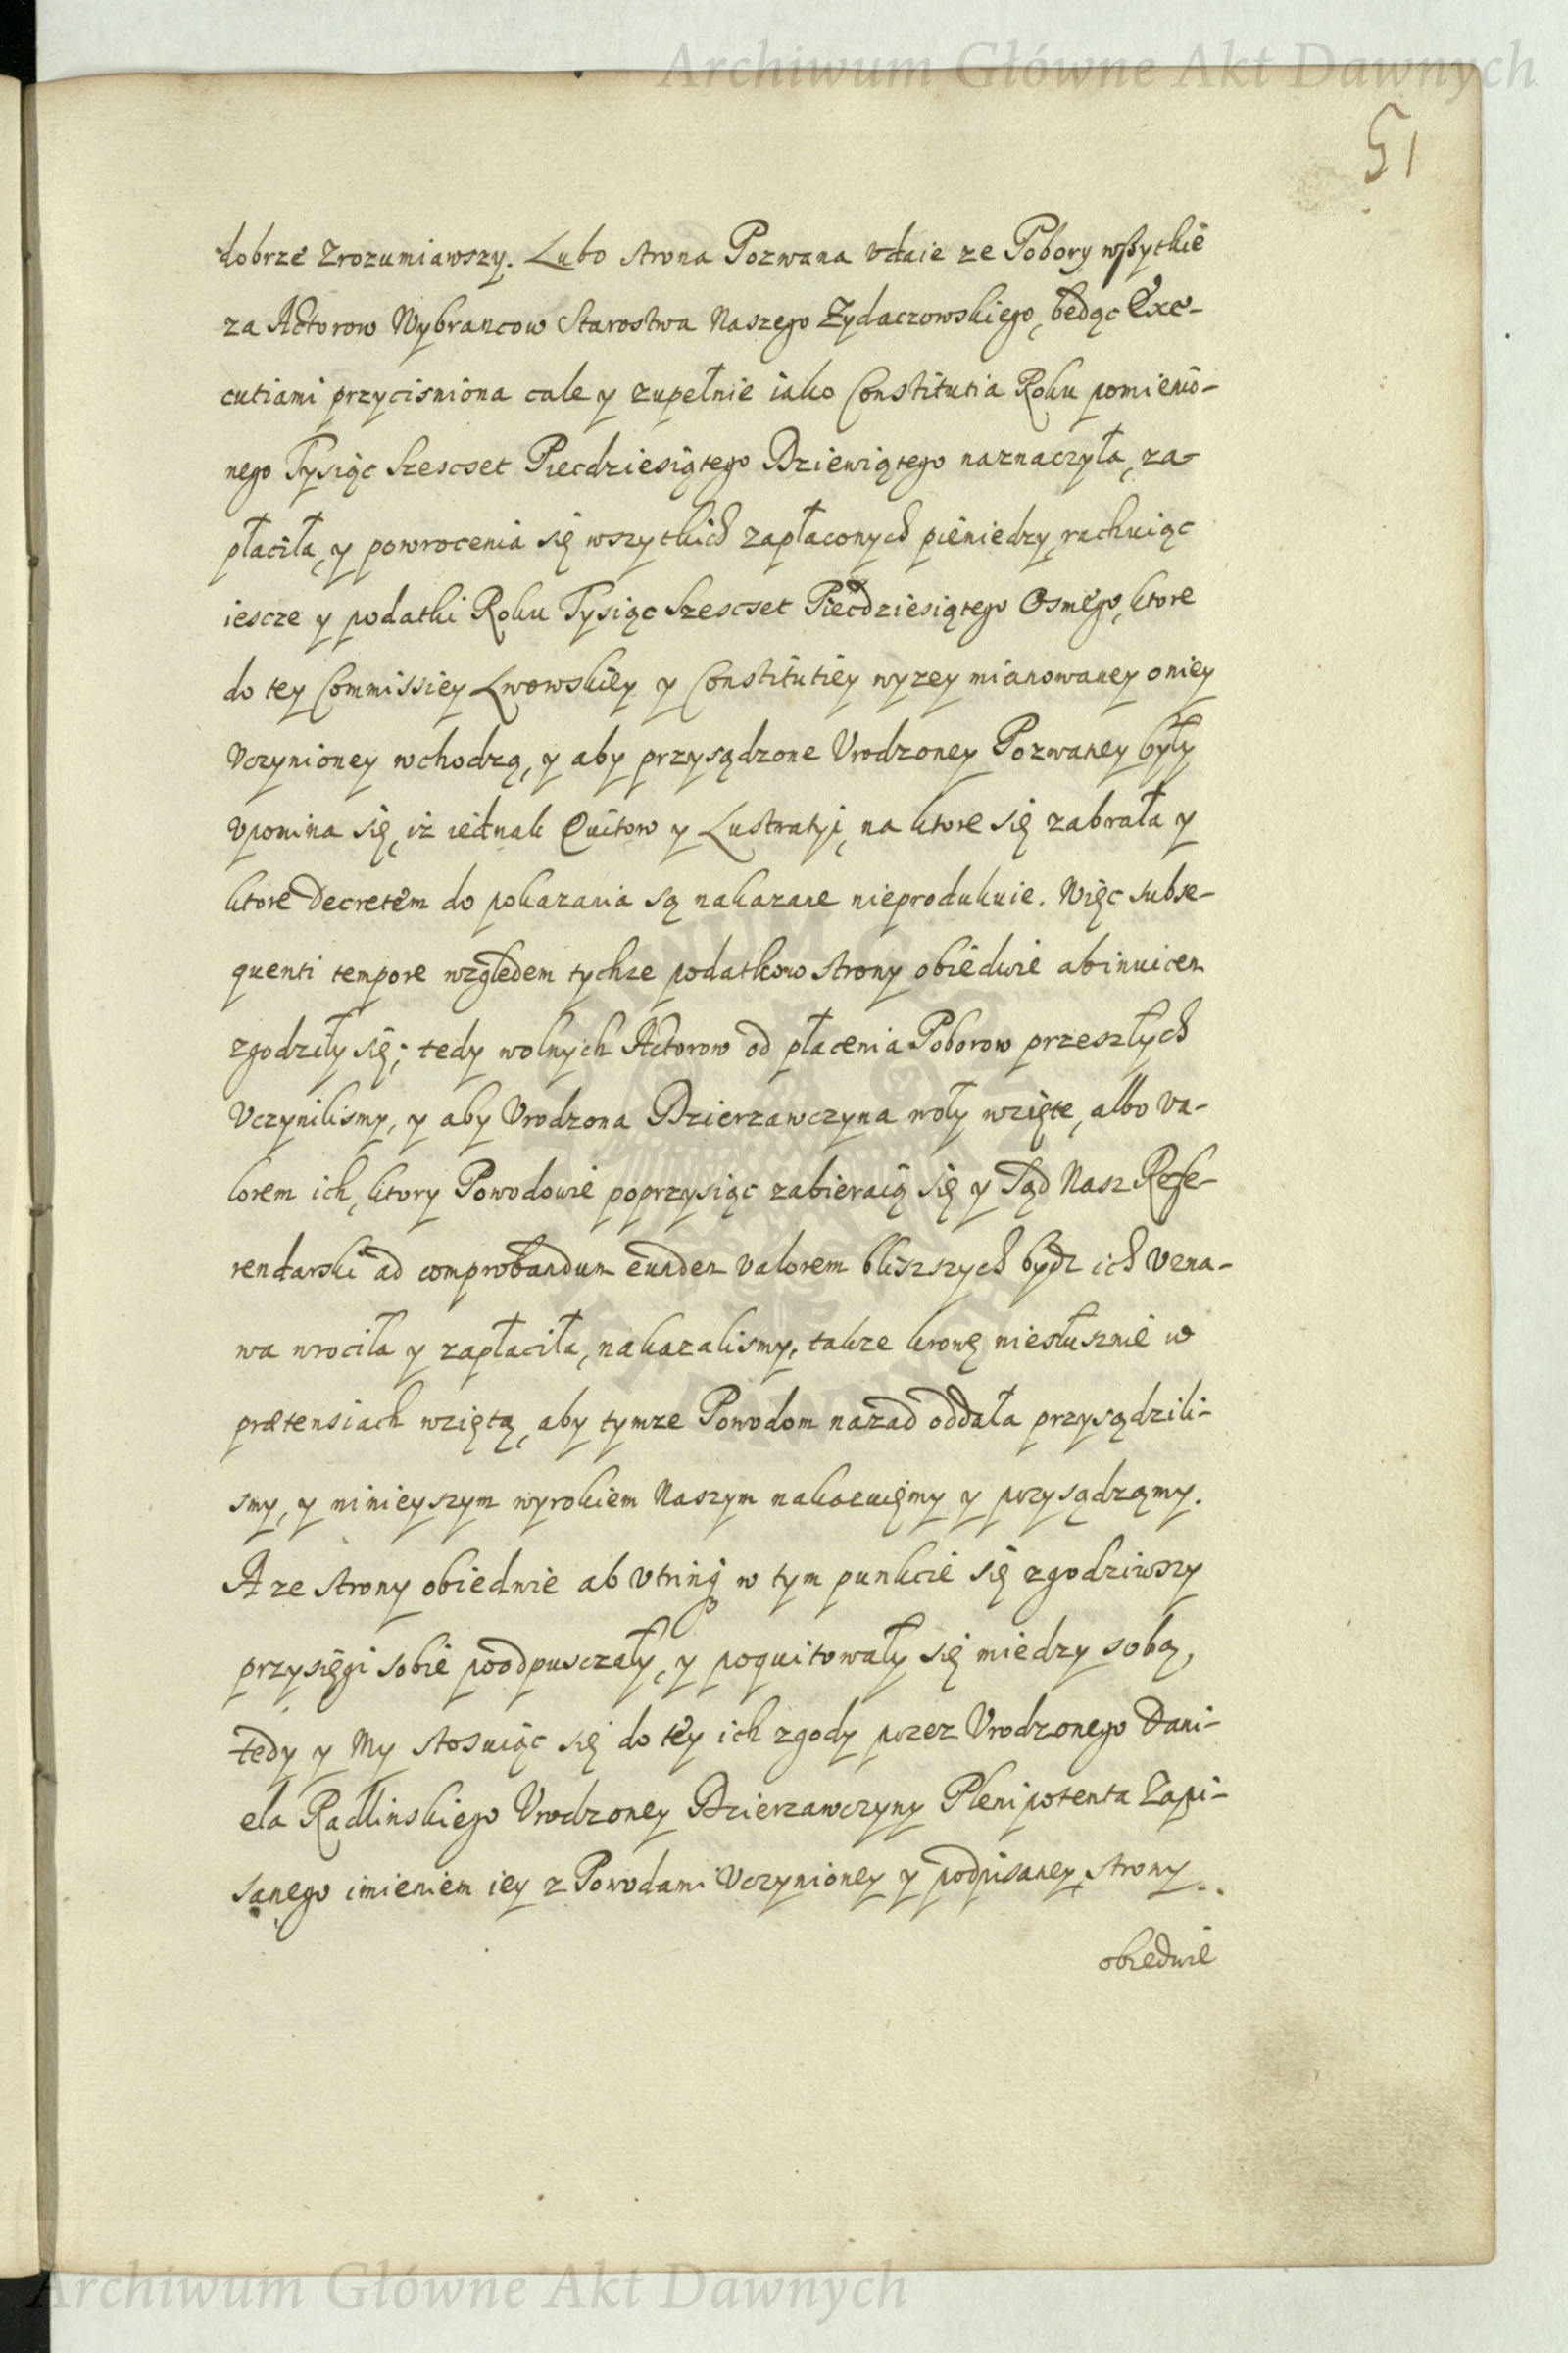 Archiwum Główne Akt Dawnych
51
dobrze Zrozumiawszy. Lubo strona Pozwana vdaie ze Pobory wszytkie
za Actorow Wybrancow Starostwa Naszego Zydaczowskiego, będąc Exe-
cutiami przycisniona cale y zupełnie iako Constitutia Roku pomienio-
nego Tysiąc Szescset Piecdziesiątego Dziewiątego naznaczyła, za-
płaciła, y powrocenia się wszytkich zapłaconych pieniedzy, rachuiąc
iescze y podatki Roku Tysiąc Szescset Piecdziesiątego Osmego, ktore
do tey Commissiey Lwowskiey y Constitutiey wyzey mianowaney oniey
Vczynioney wchodzą, y aby przysądzone Vrodzoney Pozwaney były
vpomina się, iz iednak Quitow y Lustratyi, na ktore się zabrała y
ktore Decretem do pokazania są nakazane nieprodukuie. Więc subse-
quenti tempore względem tychze podatkow strony obiedwie abinuicem
zgodziły się; tedy wolnych Actorow od płacenia Poborow przeszłych
Vczynilismy, y aby Vrodzona Dzierzawczyna woły wzięte, albo va-
lorem ich, ktory Powodowie poprzysiąc zabieraią się y Sąd Nasz Refe-
rendarski ad comprobandum eundem valorem bliszszych bydz ich vzna-
wa wrociła y zapłaciła, nakazalismy, takze krowę niesłusznie w
prætensiach wziętą, aby tymze Powodom nazad oddała przysądzili-
smy, y ninieyszym wyrokiem Naszym nakazuięmy y przysądzamy.
A ze strony obiedwie ab vtrinq w tym punkcie się zgodziwszy
przysięgi sobie poodpusczały, y poquitowały się miedzy sobą,
tedy y My stosuiąc się do tey ich zgody przez Vrodzonego Dani-
ela Radlinskiego Vrodzoney Dzierzawczyny Plenipotenta Zapi-
sanego imieniem iey z Powodami Vczynioney y podpisaney, strony
obiedwie
Archiwum Główne Akt Dawnych